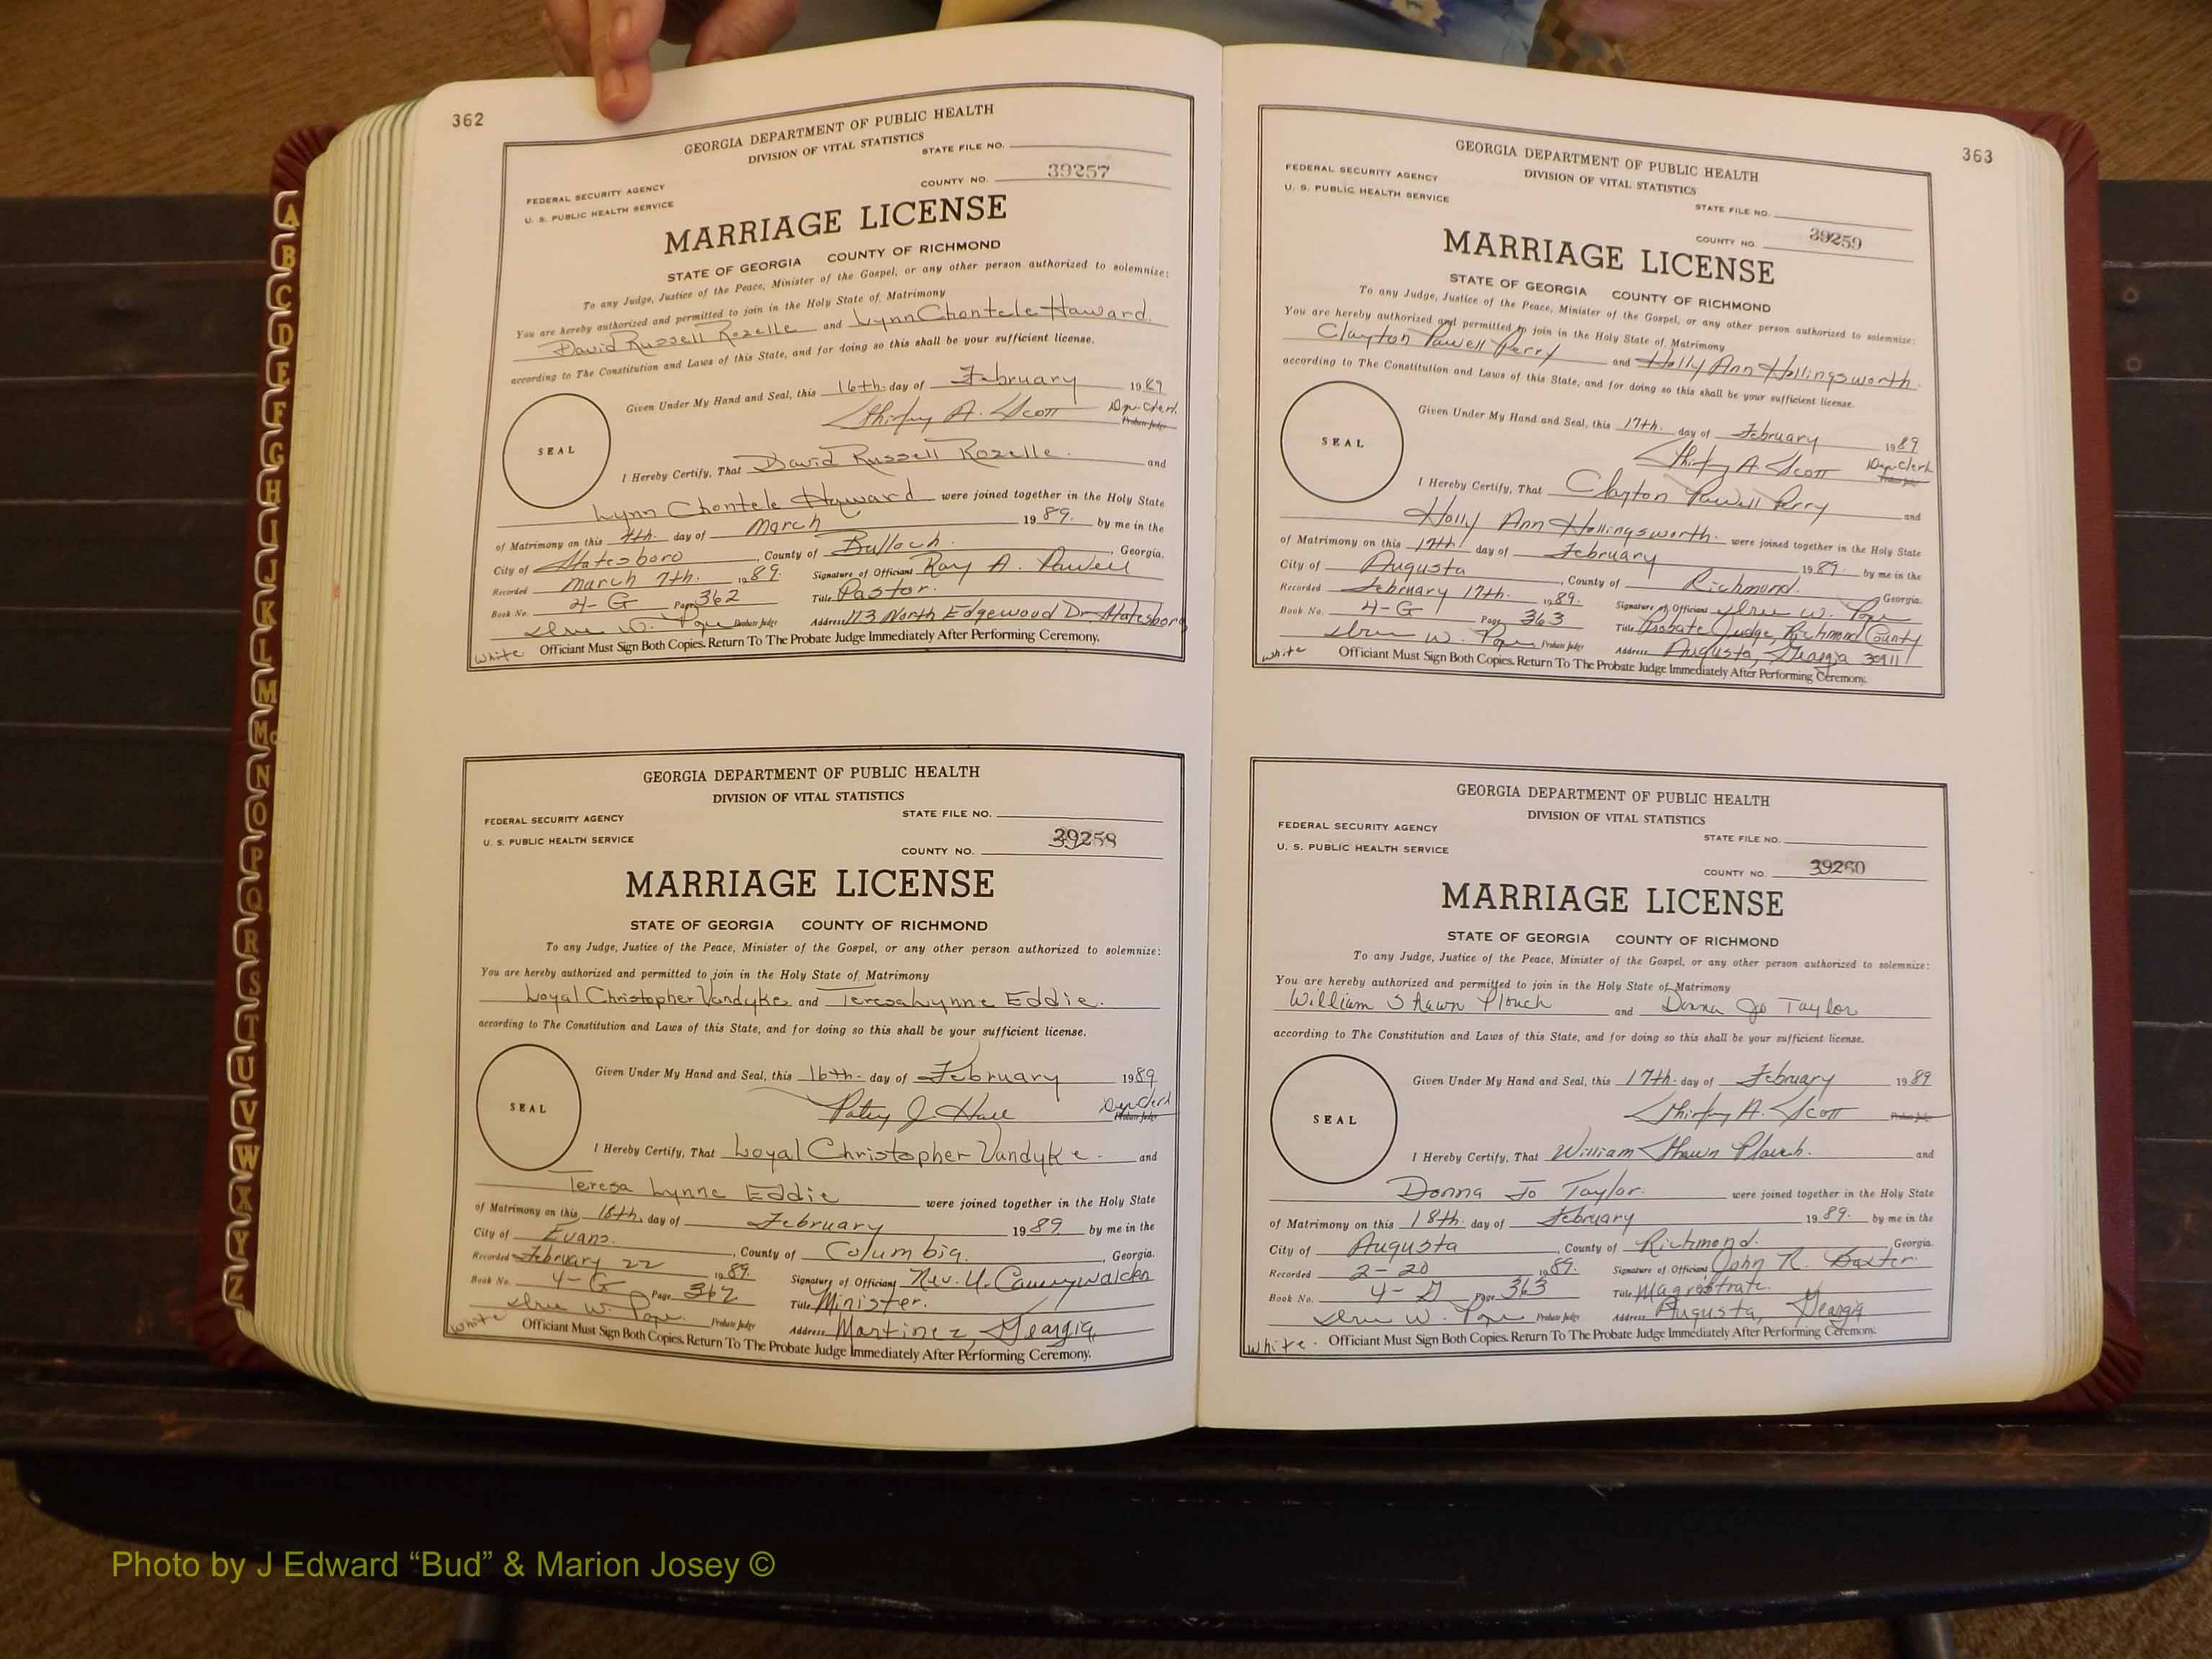 362
GEORGIA DEPARTMENT OF PUBLIC HEALTH
DIVISION OF VITAL STATISTICS
STATE FILE NO.
FEDERAL SECURITY AGENCY
COUNTY NO. 39257
U. S. PUBLIC HEALTH SERVICE
MARRIAGE LICENSE
STATE OF GEORGIA COUNTY OF RICHMOND
To any Judge, Justice of the Peace, Minister of the Gospel, or any other person authorized to solemnize:
You are hereby authorized and permitted to join in the Holy State of Matrimony
David Russell Rozelle and Lynn Chontele Howard.
according to The Constitution and Laws of this State, and for doing so this shall be your sufficient license.
Given Under My Hand and Seal, this 16th. day of February 1989
Shirley A. Scott Dep-Clerk
Probate Judge
SEAL
I Hereby Certify, That David Russell Rozelle. and
Lynn Chontele Howard were joined together in the Holy State
of Matrimony on this 4th. day of March 1989. by me in the
City of Statesboro, County of Bulloch., Georgia.
Recorded March 7th. 1989. Signature of Officiant Ray A. Powell
Book No. 4-G Page 362 Title Pastor.
W. Pope Probate Judge Address 113 North Edgewood Dr. Statesboro
White Officiant Must Sign Both Copies. Return To The Probate Judge Immediately After Performing Ceremony.
GEORGIA DEPARTMENT OF PUBLIC HEALTH
DIVISION OF VITAL STATISTICS
STATE FILE NO.
FEDERAL SECURITY AGENCY
U. S. PUBLIC HEALTH SERVICE
COUNTY NO. 39258
MARRIAGE LICENSE
STATE OF GEORGIA COUNTY OF RICHMOND
To any Judge, Justice of the Peace, Minister of the Gospel, or any other person authorized to solemnize:
You are hereby authorized and permitted to join in the Holy State of Matrimony
Loyal Christopher Vandyke and Teresa Lynne Eddie.
according to The Constitution and Laws of this State, and for doing so this shall be your sufficient license.
Given Under My Hand and Seal, this 16th. day of February 1989
Patsy J. Hall Dep Clerk
Probate Judge
SEAL
I Hereby Certify, That Loyal Christopher Vandyke. and
Teresa Lynne Eddie were joined together in the Holy State
of Matrimony on this 18th. day of February 1989. by me in the
City of Evans., County of Columbia., Georgia.
Recorded February 22 1989. Signature of Officiant Rev. U.
Book No. 4-G Page 362 Title Minister.
W. Pope. Probate Judge Address Martinez, Georgia
White Officiant Must Sign Both Copies. Return To The Probate Judge Immediately After Performing Ceremony.
363
GEORGIA DEPARTMENT OF PUBLIC HEALTH
DIVISION OF VITAL STATISTICS
FEDERAL SECURITY AGENCY
U. S. PUBLIC HEALTH SERVICE
STATE FILE NO.
COUNTY NO. 39259
MARRIAGE LICENSE
STATE OF GEORGIA COUNTY OF RICHMOND
To any Judge, Justice of the Peace, Minister of the Gospel, or any other person authorized to solemnize:
You are hereby authorized and permitted to join in the Holy State of Matrimony
Clayton Powell Perry and Holly Ann Hollingsworth.
according to The Constitution and Laws of this State, and for doing so this shall be your sufficient license.
Given Under My Hand and Seal, this 17th. day of February 1989
Shirley A. Scott Dep-Clerk
Probate Judge
SEAL
I Hereby Certify, That Clayton Powell Perry and
Holly Ann Hollingsworth. were joined together in the Holy State
of Matrimony on this 17th. day of February 1989. by me in the
City of Augusta, County of Richmond. Georgia.
Recorded February 17th. 1989. Signature of Officiant W. Pope
Book No. 4-G Page 363 Title Probate Judge, Richmond County
W. Pope Probate Judge Address Augusta, Georgia 30911
White Officiant Must Sign Both Copies. Return To The Probate Judge Immediately After Performing Ceremony.
GEORGIA DEPARTMENT OF PUBLIC HEALTH
DIVISION OF VITAL STATISTICS
FEDERAL SECURITY AGENCY
STATE FILE NO.
U. S. PUBLIC HEALTH SERVICE
COUNTY NO. 39260
MARRIAGE LICENSE
STATE OF GEORGIA COUNTY OF RICHMOND
To any Judge, Justice of the Peace, Minister of the Gospel, or any other person authorized to solemnize:
You are hereby authorized and permitted to join in the Holy State of Matrimony
William Shawn Plouch and Donna Jo Taylor
according to The Constitution and Laws of this State, and for doing so this shall be your sufficient license.
Given Under My Hand and Seal, this 17th. day of February 1989
Shirley A. Scott Probate Judge
SEAL
I Hereby Certify, That William Shawn Plouch. and
Donna Jo Taylor. were joined together in the Holy State
of Matrimony on this 18th. day of February 1989. by me in the
City of Augusta, County of Richmond. Georgia.
Recorded 2-20 1989. Signature of Officiant John R. Baxter.
Book No. 4-G Page 363 Title Magistrate.
W. Pope Probate Judge Address Augusta, Georgia
White. Officiant Must Sign Both Copies. Return To The Probate Judge Immediately After Performing Ceremony.
A
B
C
D
E
F
G
H
I
J
K
L
M
Mc
N
O
P
Q
R
S
T
U
V
W
X
Y
Z
Photo by J Edward “Bud” & Marion Josey ©